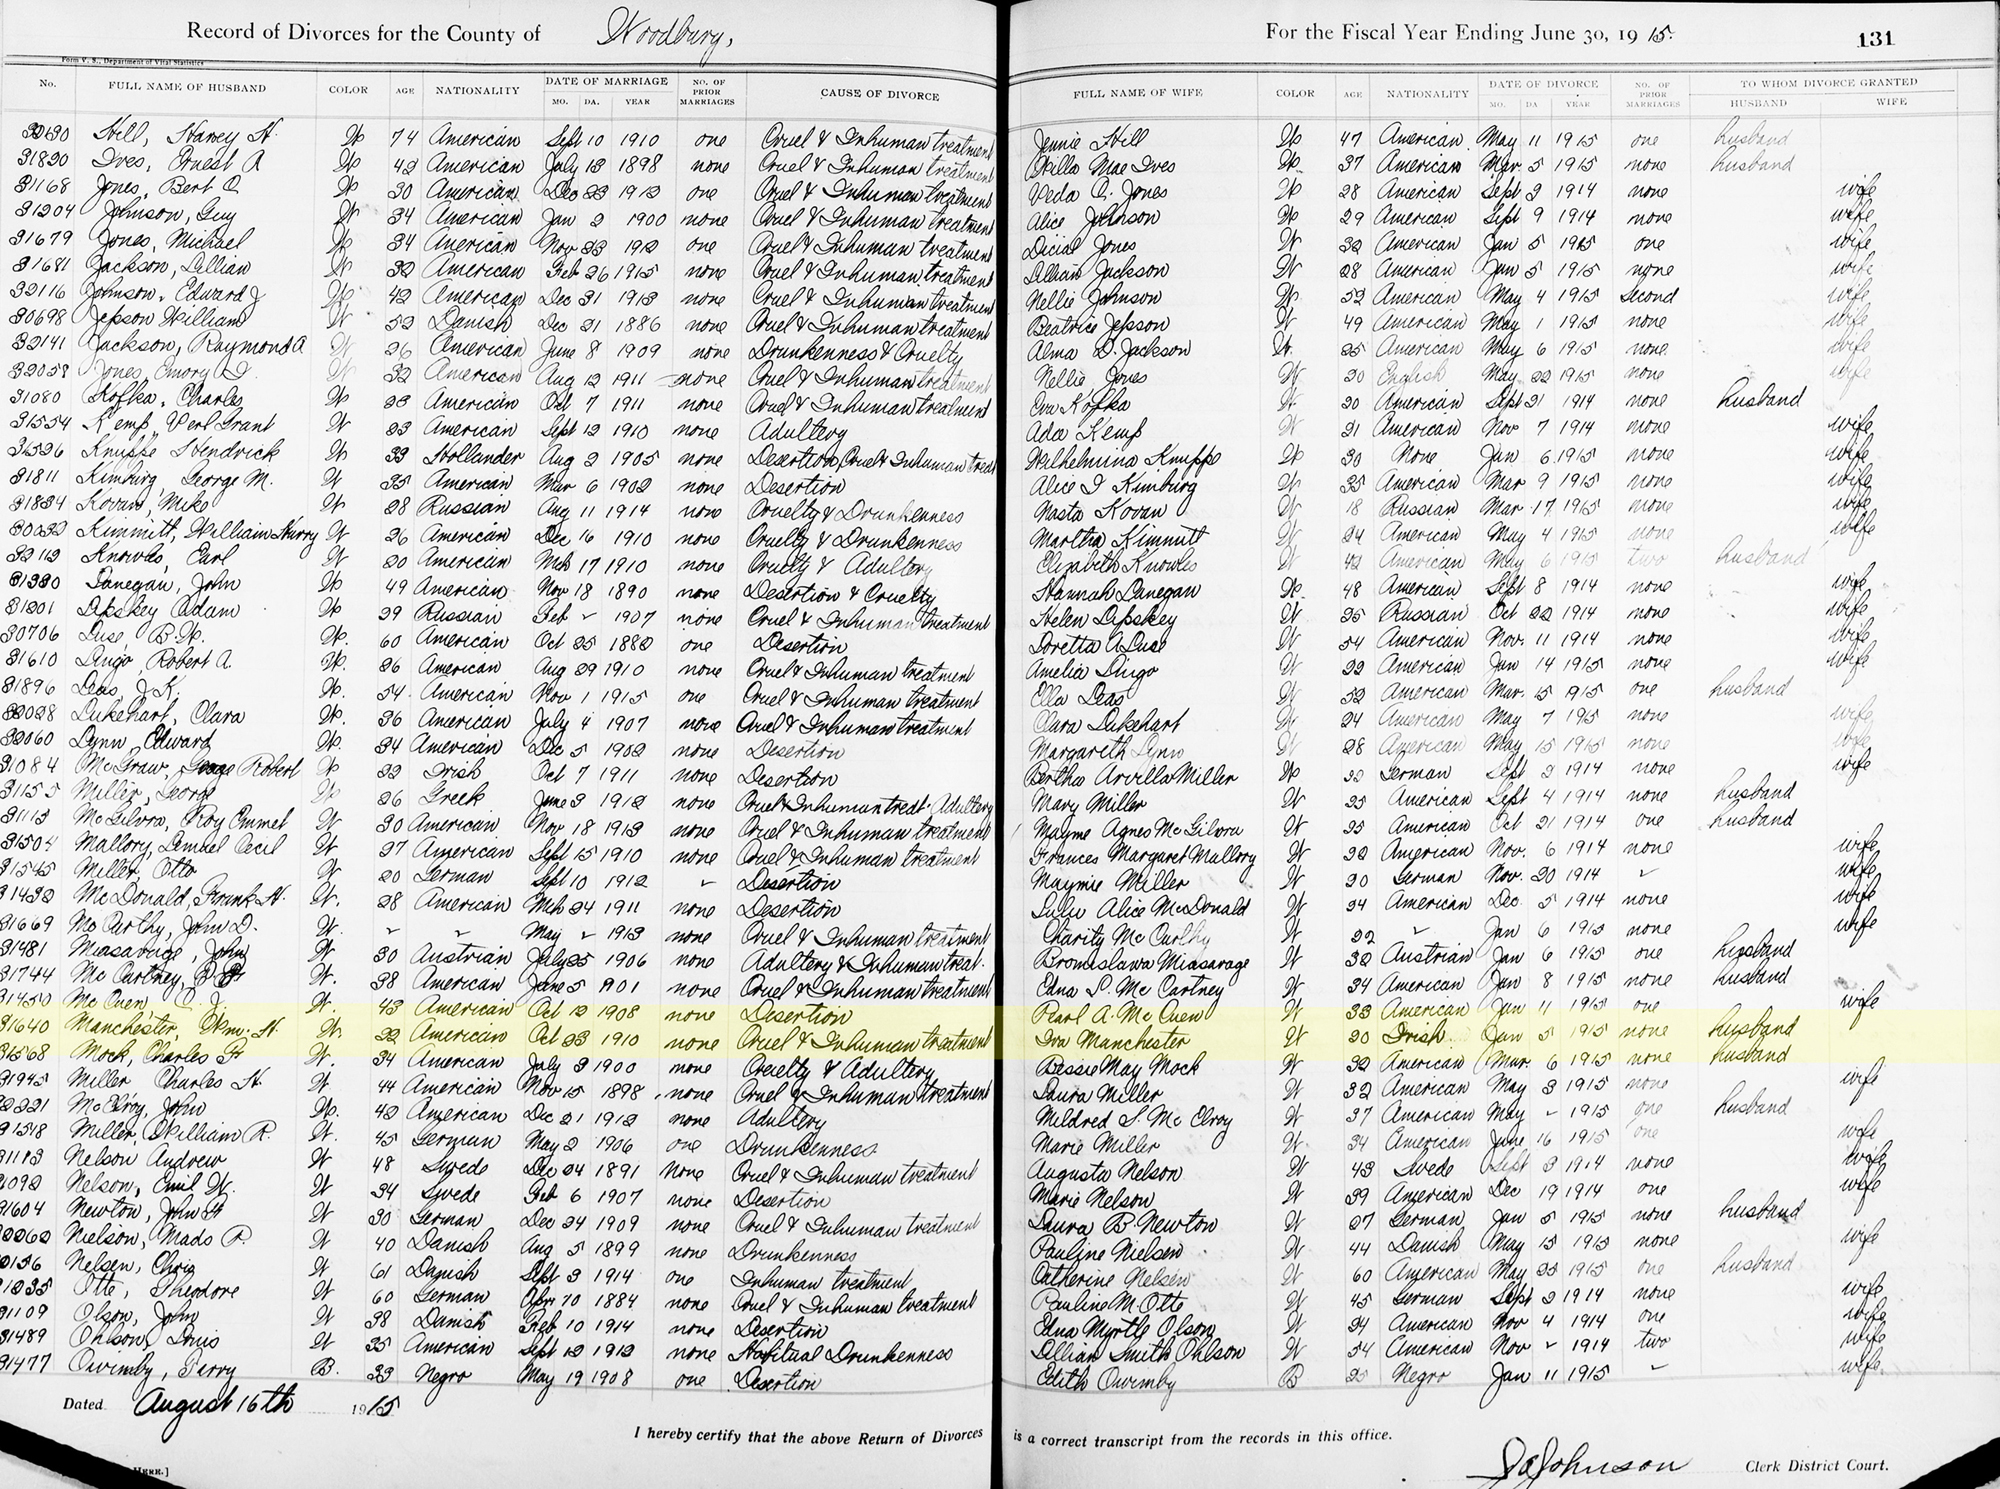 Record of Divorces for the County of Woodbury, For the Fiscal Year Ending June 30, 1915. 131
Form V. S., Department of Vital Statistics
No. FULL NAME OF HUSBAND COLOR AGE NATIONALITY DATE OF MARRIAGE MO. DA. YEAR NO. OF PRIOR MARRIAGES CAUSE OF DIVORCE FULL NAME OF WIFE COLOR AGE NATIONALITY DATE OF DIVORCE MO. DA YEAR NO. OF PRIOR MARRIAGES TO WHOM DIVORCE GRANTED HUSBAND WIFE
Hill, Harvey H. W 74 American Sept 10 1910 one Cruel & Inhuman treatment Jennie Hill W 47 American May 11 1915 one husband
31820 Ives, Ernest A W 42 American July 13 1898 none Cruel & Inhuman treatment Willa Mae Ives W. 37 American Mar. 5 1915 none husband
31168 Jones, Bert C. W 30 American Dec 23 1913 one Cruel & Inhuman treatment Veda C. Jones W 28 American Sept 3 1914 none wife
31204 Johnson, Guy W 34 American Jan 2 1900 none Cruel & Inhuman treatment Alice Johnson W 29 American Sept 9 1914 none wife
31679 Jones, Michael W 34 American Nov 23 1912 one Cruel & Inhuman treatment Dicial Jones W 32 American Jan 5 1915 one wife
31681 Jackson, Lillian W 32 American Feb 26 1915 none Cruel & Inhuman treatment Lillian Jackson W 28 American Jan 5 1915 none wife
32116 Johnson, Edward J W 42 American Dec 31 1913 none Cruel & Inhuman treatment Nellie Johnson W 52 American May 4 1915 Second wife
30698 Jepson William W 52 Danish Dec 21 1886 none Cruel & Inhuman treatment Beatrice Jepson W 49 American May 1 1915 none wife
32141 Jackson, Raymond A. W 26 American June 8 1909 none Drunkenness & Cruelty Alma D. Jackson W. 25 American May 6 1915 none wife
32058 Jones, Emory I. W 32 American Aug 12 1911 none Cruel & Inhuman treatment Nellie Jones W 30 English May 22 1915 none wife
31080 Kofka, Charles W 23 American Oct 7 1911 none Cruel & Inhuman treatment Eva Kofka W 20 American Sept 21 1914 none husband
31554 Kemp, Verl Grant W 23 American Sept 12 1910 none Adultery Ada Kemp W 21 American Nov 7 1914 none wife
Knuppe Hendrick W 33 Hollander Aug 2 1905 none Desertion, Cruel & Inhuman treat Wilhelmina Knuppe W 30 None Jan 6 1915 none wife
31811 Kimburg George M. W 35 American Mar 6 1902 none Desertion Alice I Kimburg W 35 American Mar 9 1915 none wife
31834 Kovan, Mike W 28 Russian Aug 11 1914 none Cruelty & Drunkenness Nasta Kovan W 18 Russian Mar 17 1915 none wife
Kimmitt, William Harry W 26 American Dec 16 1910 none Cruelty & Drunkenness Martha Kimmitt W 24 American May 4 1915 none wife
32113 Knowles, Earl W 20 American Mch 17 1910 none Cruelty & Adultery Elizabeth Knowles W 42 American May 6 1915 two husband
Lanegan, John W 49 American Nov 18 1890 none Desertion & Cruelty Hannah Lanegan W. 48 American Sept 8 1914 none wife
31201 Lipskey Adam W 39 Russian Feb ✓ 1907 none Cruel & Inhuman treatment Helen Lipskey W 35 Russian Oct 22 1914 none wife
30706 Luse, B.W. W. 60 American Oct 25 1882 one Desertion Loretta A Luse W 54 American Nov. 11 1914 none wife
31610 Lingo, Robert A. W. 26 American Aug 29 1910 none Cruel & Inhuman treatment Amelia Lingo W 22 American Jan 14 1915 none wife
31896 Leas, J.K. W. 54 American Nov 1 1915 one Cruel & Inhuman treatment Ella Leas W 52 American Mar. 15 1915 one husband
32028 Lukehart, Clara W. 36 American July 4 1907 none Cruel & Inhuman treatment Clara Lukehart W 24 American May 7 1915 none wife
32060 Lynn, Edward W. 34 American Dec 5 1902 none Desertion Margareth Lynn W 28 American May 15 1915 none wife
31084 McGraw, Robert W 22 Irish Oct 7 1911 none Desertion Bertha Arvilla Miller W 22 German Sept 3 1914 none wife
31155 Miller, George W 26 Greek June 3 1912 none Cruel & Inhuman treat. Adultery Mary Miller W 25 American Sept 4 1914 none husband
31113 McGilvra, Roy Emmet W 30 American Nov 18 1913 none Cruel & Inhuman treatment Mayme Agnes McGilvra W 25 American Oct 21 1914 one husband
31504 Mallory, Lemuel Cecil W 27 American Sept 15 1910 none Cruel & Inhuman treatment Frances Margaret Mallory W 22 American Nov. 6 1914 none wife
31545 Miller, Otto W 20 German Sept 10 1912 ✓ Desertion Maymie Miller W 20 German Nov. 20 1914 ✓ wife
31432 McDonald, Frank H. W. 28 American Mch 24 1911 none Desertion Lulu Alice McDonald W 24 American Dec 5 1914 none wife
31669 McCarthy, John D. W. ✓ ✓ May ✓ 1913 none Cruel & Inhuman treatment Charity McCarthy W 22 ✓ Jan 6 1915 none wife
31481 Miasavage, John W 30 Austrian July 25 1906 none Adultery & Inhuman treat. Bronislawa Miasavage W 32 Austrian Jan 6 1915 one husband
31744 McCartney, W. 38 American June 5 1901 none Cruel & Inhuman treatment Edna S. McCartney W 34 American Jan 8 1915 none husband
31450 McCuen, C. J. W. 43 American Oct 12 1908 none Desertion Pearl A. McCuen W 33 American Jan 11 1915 one wife
31640 Manchester, Wm. H. W. 22 American Oct 23 1910 none Cruel & Inhuman treatment Iva Manchester W 20 Irish Jan 5 1915 none husband
31568 Mock, Charles F W. 34 American July 3 1900 none Cruelty & Adultery Bessie May Mock W 32 American Mar. 6 1915 none husband
31945 Miller Charles H. W 44 American Nov 15 1898 none Cruel & Inhuman treatment Laura Miller W 32 American May 3 1915 none wife
McElroy, John W. 42 American Dec 21 1912 none Adultery Mildred S. McElroy W 37 American May ✓ 1915 one husband
31518 Miller, William R. W. 45 German May 2 1906 one Drunkenness Marie Miller W 34 American June 16 1915 one wife
31113 Nelson Andrew W 48 Swede Dec 24 1891 none Cruel & Inhuman treatment Augusta Nelson W 43 Swede Sept 3 1914 none wife
Nelson, Emil W. W 34 Swede Feb 6 1907 none Desertion Marie Nelson W 39 American Dec 19 1914 one wife
31604 Newton, John F W 30 German Dec 24 1909 none Cruel & Inhuman treatment Laura B Newton W 27 German Jan 5 1915 none husband
Nielson, Mads P. W 40 Danish Aug 5 1899 none Drunkenness Pauline Nielsen W 44 Danish May 15 1915 none wife
Nelsen, Chris W 61 Danish Sept 3 1914 one Inhuman treatment Catherine Nelsen W 60 American May 25 1915 one husband
31235 Otte, Theodore W 60 German Apr 10 1884 none Cruel & Inhuman treatment Pauline M. Otte W 45 German Sept 3 1914 none wife
31109 Olson, John W 38 Danish Feb 10 1914 none Desertion Edna Myrtle Olson W 24 American Nov 4 1914 one wife
31489 Ohlson, Louis W 35 American Sept 12 1912 none Habitual Drunkenness Lillian Smith Ohlson W 54 American Nov ✓ 1914 two wife
31477 Owimby, Perry B. 33 Negro May 19 1908 one Desertion Edith Owimby B 25 Negro Jan 11 1915 ✓ wife
Dated August 16th 1915
I hereby certify that the above Return of Divorces is a correct transcript from the records in this office.
Johnson Clerk District Court.
HERE.]